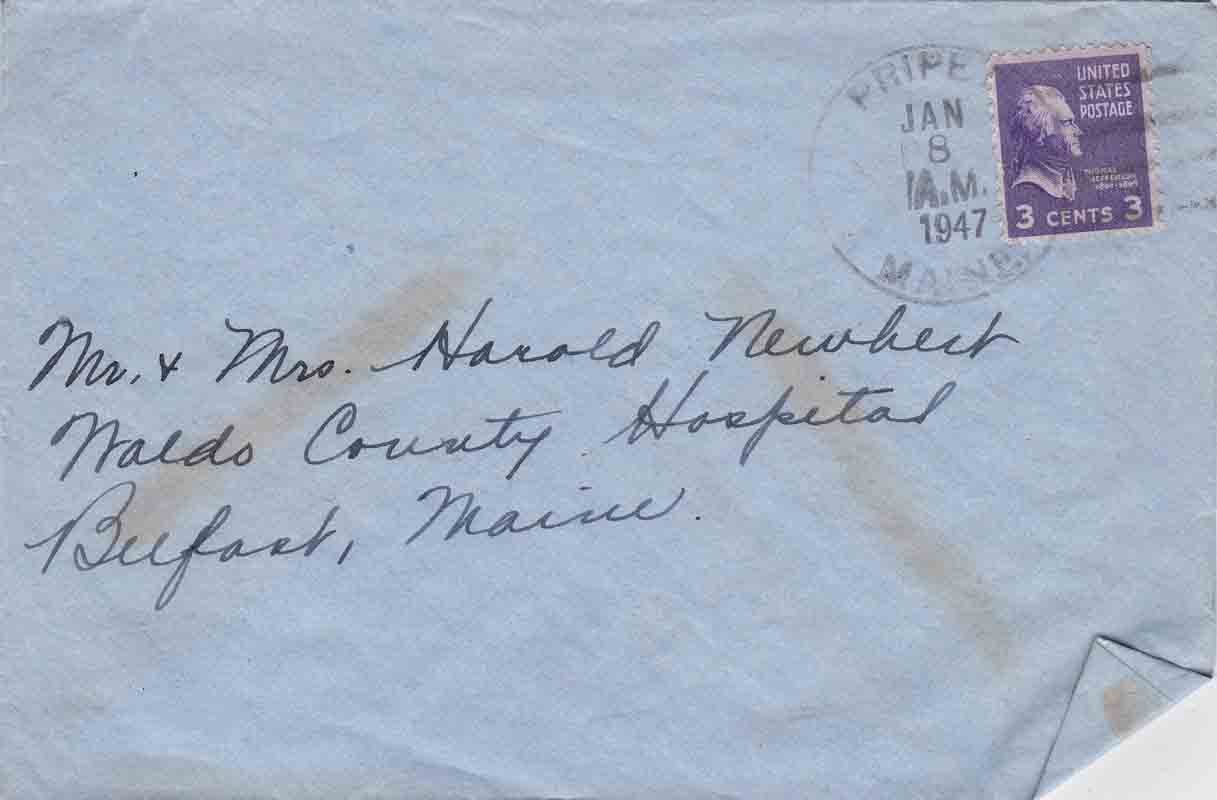 PRIPE
JAN
8
A.M.
1947
MAINE
UNITED
STATES
POSTAGE
THOMAS
JEFFERSON
1801-1809
3 CENTS 3
Mr. & Mrs. Harold Newbert
Waldo County Hospital
Belfast, Maine.